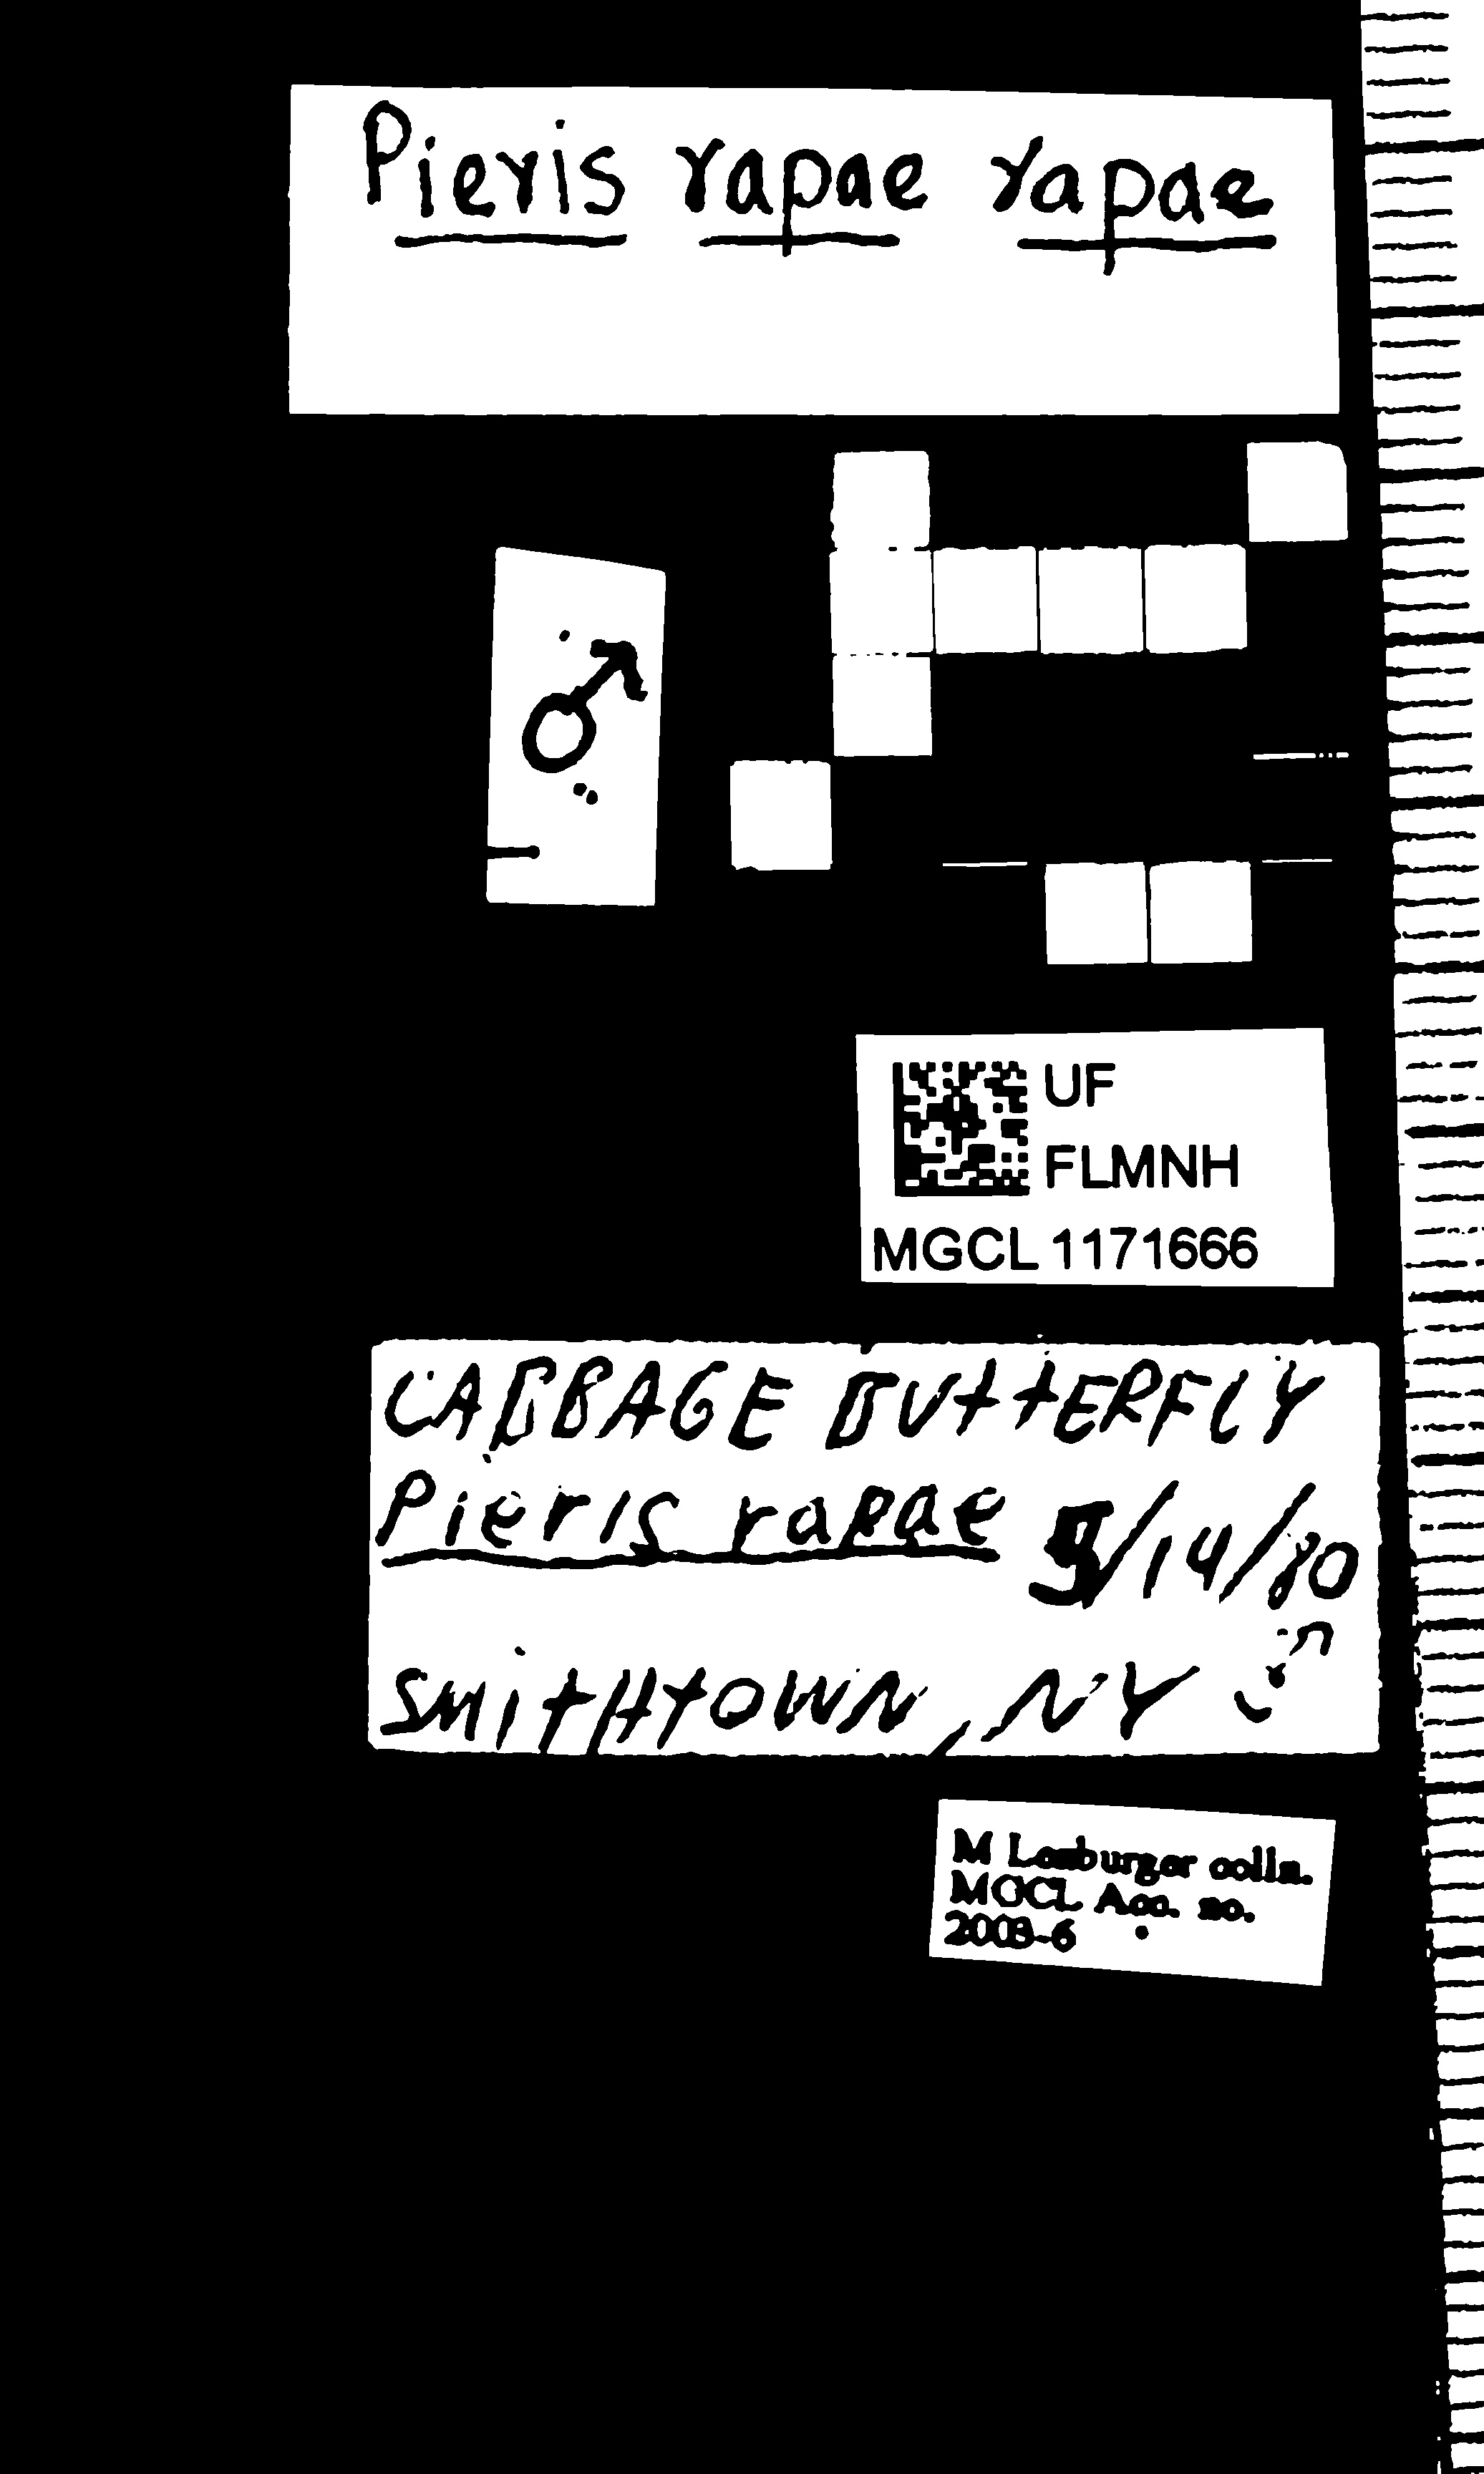 Pieris rapae rapae
♂
UF
FLMNH
MGCL 1171666
CABBAGE BUTTERFLY
Pieris rapae 9/14/80
SMITHTOWN, NY ♂
M Lesburger colln.
MGCL Acc. no.
2003-6